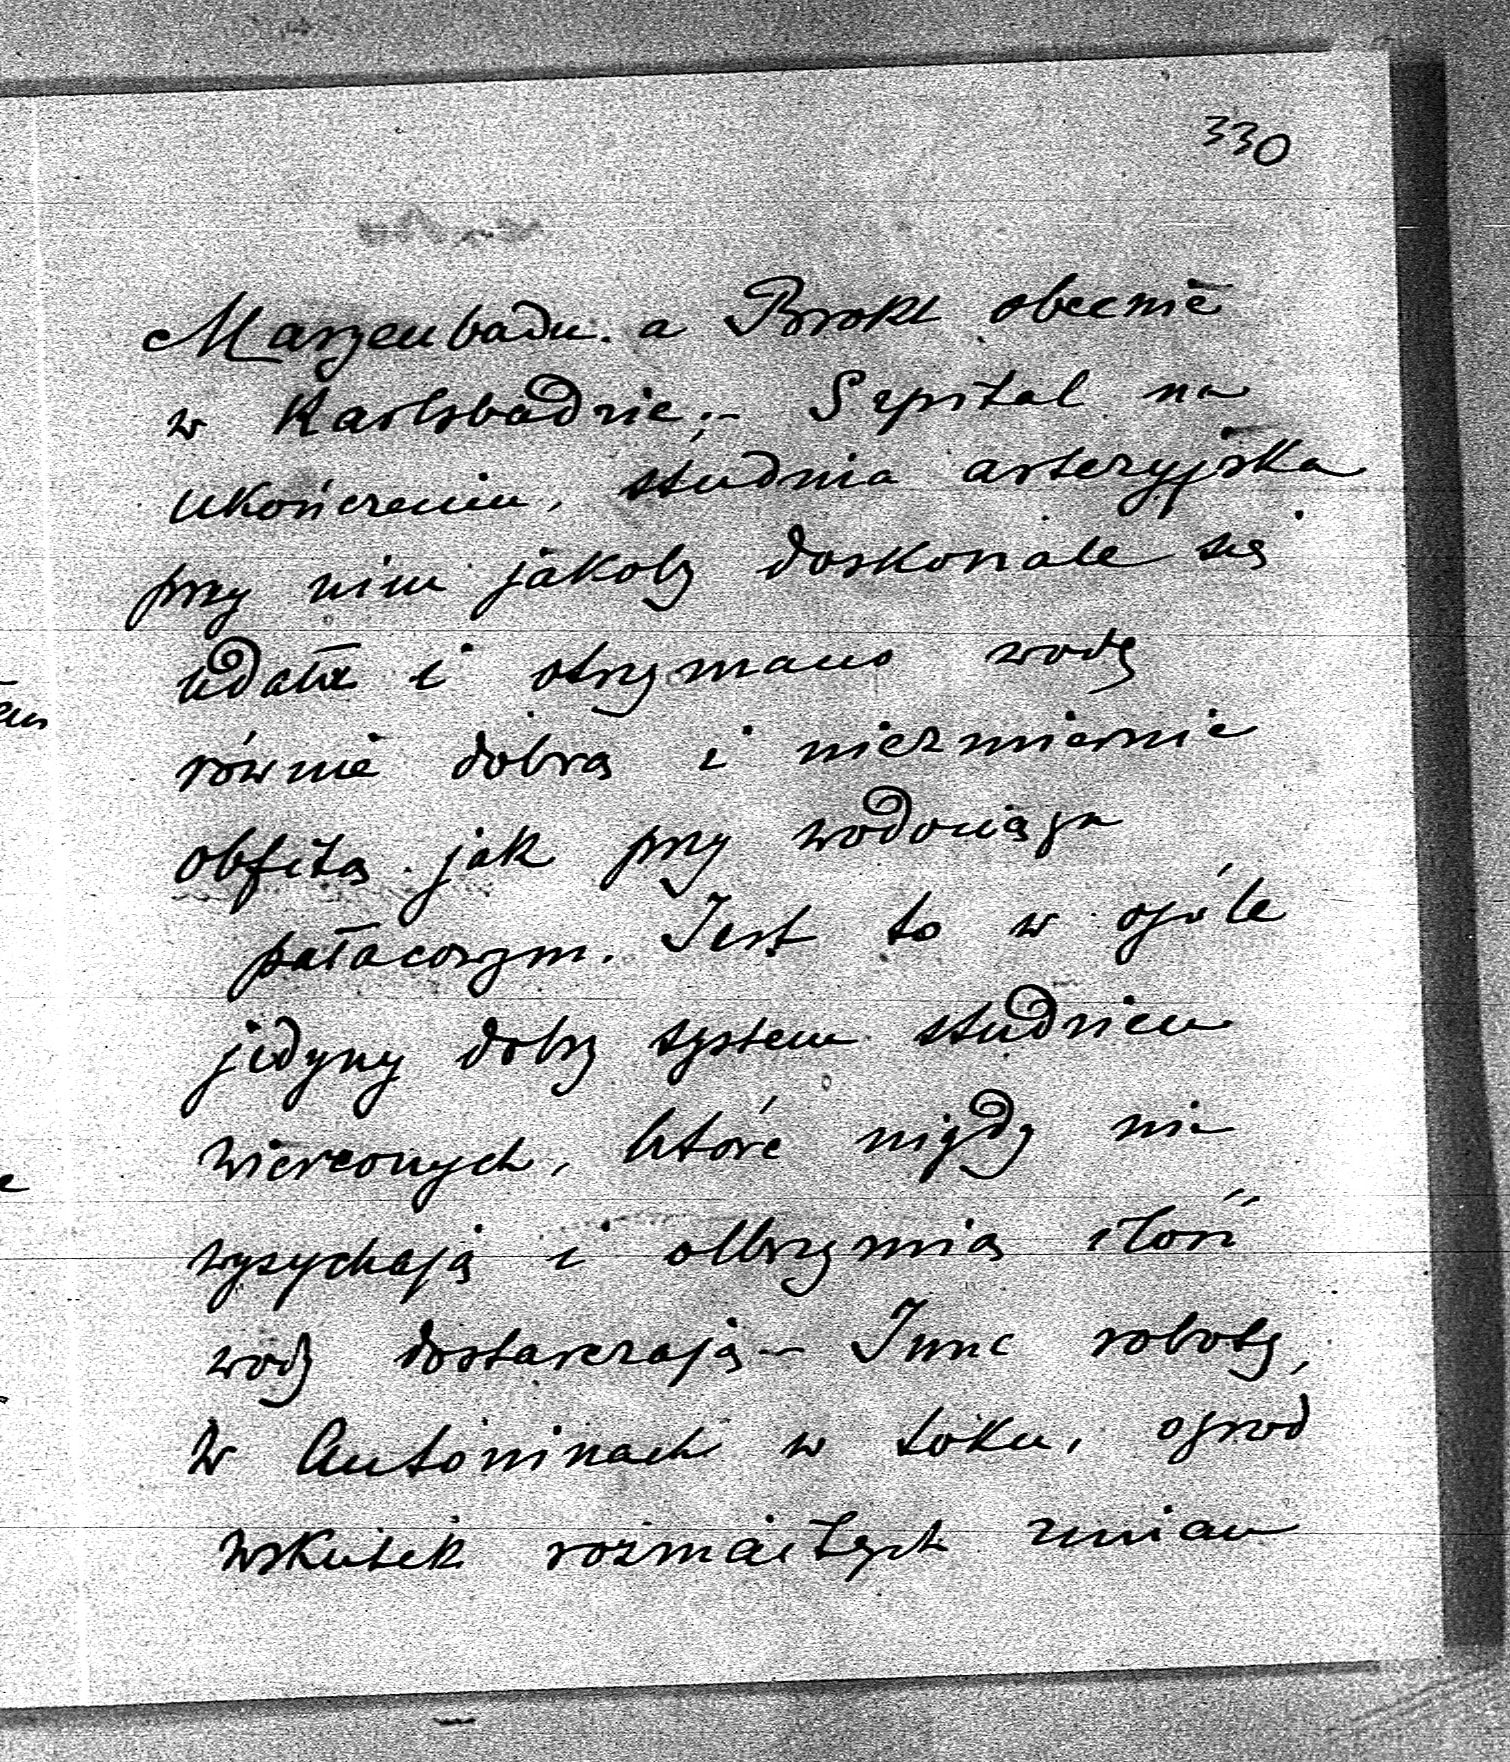 330
Maryenbadu. a Prokl obecnie
w Karlsbadzie;- Szpital na
ukończeniu, studnia arteryjska
przy nim jakoby doskonale się
udała i otrzymano wodę
równie dobrą i niezmiernie
obfitą jak przy wodociągu
pałacowym. Jest to w ogóle
jedyny dobry system studzien
wierconych, które nigdy nie
wysychają i olbrzymią ilość
wody dostarczają - Inne roboty,
w Antoninach w toku, ogrod
wskutek rozmaitych zmian